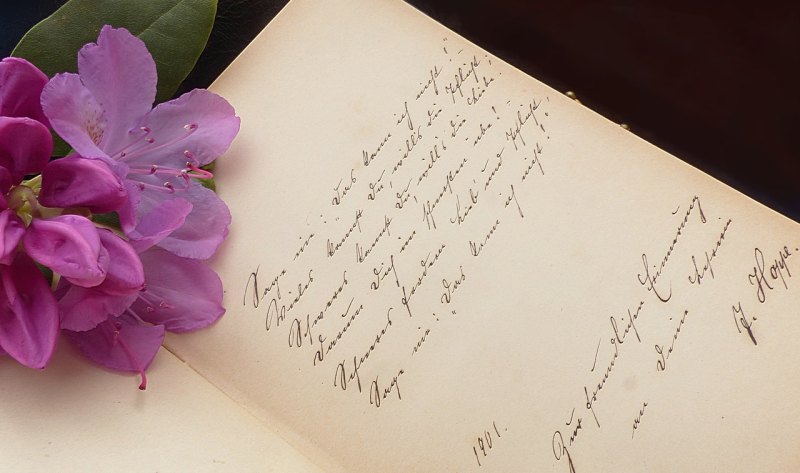 Sage nie: "Das kann ich nicht"! -
Vieles kannst Du, will's die Pflicht;
Schweres kannst Du, will's die Liebe.
Darum Dich im Schwersten übe! -
Schweres fordern Lieb' und Pflicht.
Sage nie: "Das kann ich nicht"!
1901.
Zur freundlichen Erinnerung
an Deine Lehrerin
J. Hoppe.